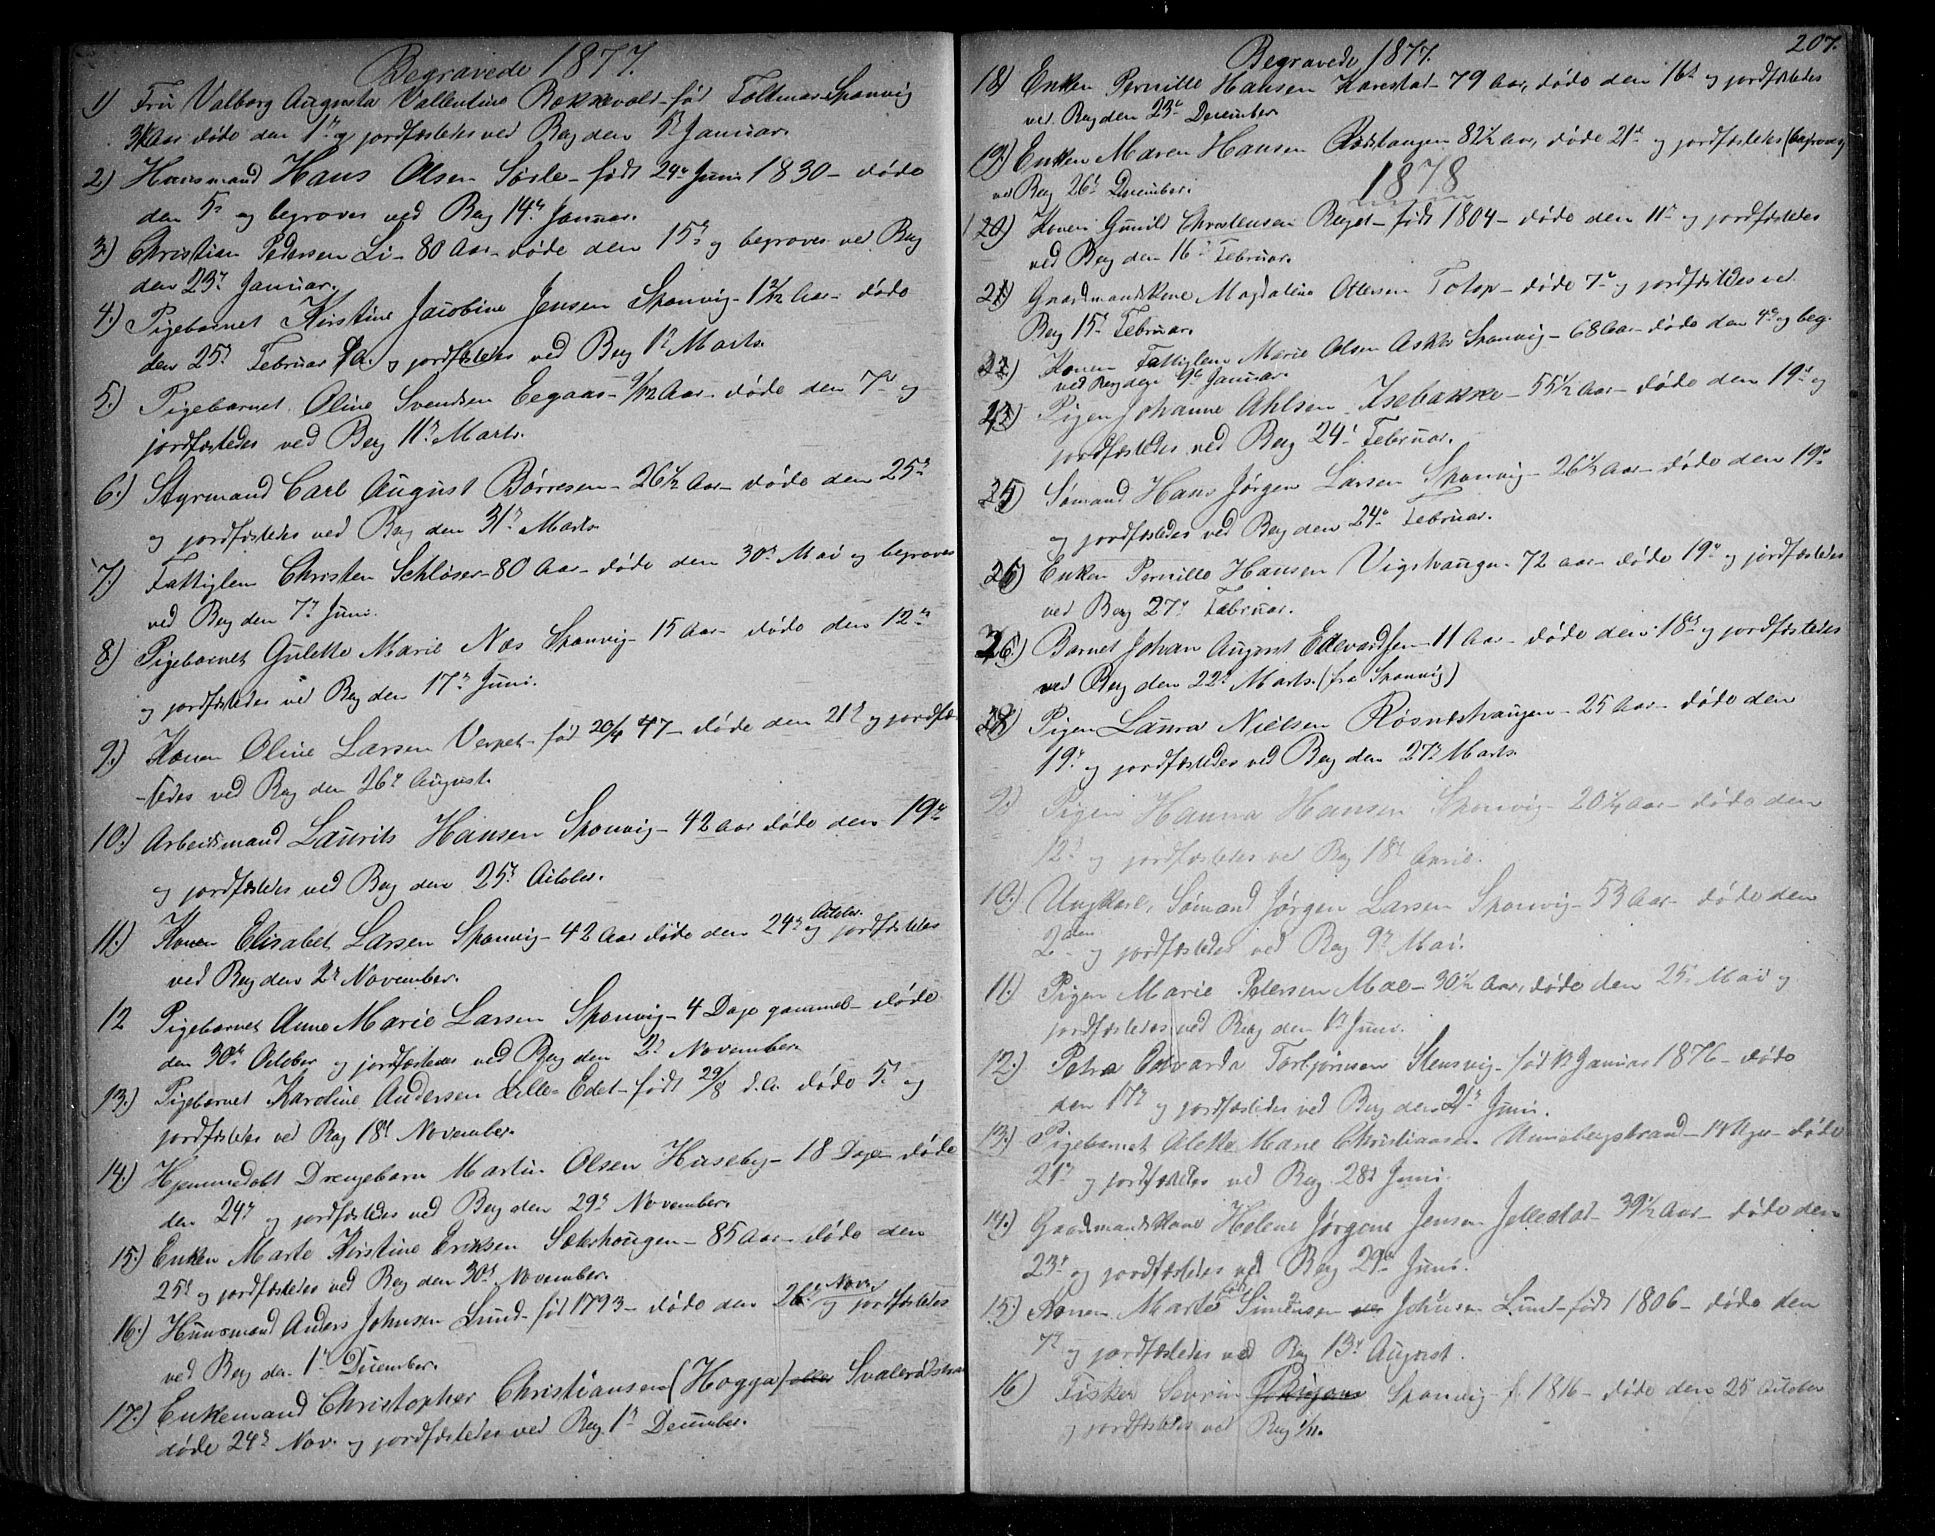 Begravede 1877.
1) Fru Valborg Augusta Vallentine Bakkevold - fød Foltmar Sponvig
Aar døde den 1ste og jordfæstedes ved Berg den 5te Januar.
2) Huusmand Hans Olsen Sørle - født 24de Juni 1830 - døde
den 5te og begroves ved Berg 14de Januar.
3) Christian Pedersen Li - 80 Aar - døde den 15de og begroves ved Berg
den 23de Januar.
4.) Pigebarnet Kirstine Jacobine Jensen Sponvig - 1 2/12 Aar - døde
den 25de Februar og jordfæstedes ved Berg 1ste Marts.
5.) Pigebarnet Oline Svendsen Eegaas - 9/12 Aar - døde den 7de og
jordfæstedes ved Berg 11te Marts.
6.) Styrmand Carl August Børresen - 26½ Aar - døde den 25de
og jordfæstedes ved Berg den 31te Marts.
7.) Fattiglem Christen Schløser - 80 Aar - døde den 30te Mai og begroves
ved Berg den 7de Juni.
8) Pigebarnet Gulette Marie Næs Sponvig - 15 Aar - døde den 12te
og jordfæstedes ved Berg den 17de Juni.
9.) Konen Oline Larsen Verpet - fød 20/4 47 - døde den 21de og jordfæ-
-stedes ved Berg den 26de August.
10.) Arbeidsmand Laurits Hansen Sponvig - 42 Aar døde den 19de
og jordfæstedes ved Berg den 25de October.
11.) Konen Elisabet Larsen Sponvig - 42 Aar døde den 24de October og jordfæstedes
ved Berg den 2den November.
12 Pigebarnet Anne Marie Larsen Sponvig - 4 Dage gammel - døde
den 30te October og jordfæstedes ved Berg den 2den November.
13.) Pigebarnet Karoline Andersen Lille-Edet - født 29/8 d.A. døde 5te og
jordfæstedes ved Berg 18de November.
14.) Hjemmedøbt Drengebarn Martin Olsen Huseby - 18 Dage - døde
den 24de og jordfæstedes ved Berg den 29de November.
15.) Enken Marte Kirstine Eriksen Sætershougen - 85 Aar - døde den
25de og jordfæstedes ved Berg den 30te November.
16.) Huusmand Anders Johnsen Lund - fød 1793 - døde den 26de Novr og jordfæstedes
ved Berg den 1ste December.
17.) Enkemand Christopher Christiansen (Hogga) eller Svalerødstrand
døde 24de Nov. og jordfæstedes ved Berg 1ste December.
207.
Begravede 1877.
18) Enken Pernille Hansen Karestad - 79 Aar, døde den 16de og jordfæstedes
ved Berg den 23de December.
19.) Enken Maren Hansen Rødstangen 82½ Aar, døde 21de og jordfæstedes (begroves)
ved Berg 26de December.
1878
20) Konen Gunild Christensen Berget - født 1804 - døde den 11te og jordfæstedes
ved Berg den 16de Februar.
21) Gaardmandskone Magdalene Ottersen Totop - døde 7de og jordfæstedes ved
Berg 15de Februar.
22) Konen Fattiglem Marie Olsen Sponvig - 68 Aar - døde den 4de og beg.
ved Berg den 9de Januar.
23) Pigen Johanne Ahlsen Isebakke - 55½ Aar - døde den 19de og
jordfæstedes ved Berg 24de Februar.
25) Sømand Hans Jørgen Larsen Sponvig - 26½ Aar - døde den 19de
og jordfæstedes ved Berg den 24de Februar.
26) Enken Pernille Hansen Vigshaugen - 72 Aar - døde 19de og jordfæstedes
ved Berg 27de Februar.
26.) Barnet Johan August Edevardsen - 11 Aar - døde den 18de og jordfæstedes
ved Berg den 22de Marts. (fra Sponvig)
28) Pigen Laura Nielsen Røsneshaugen - 25 Aar - døde den
19de og jordfæstedes ved Berg den 27de Marts.
9.) Pigen Hanna Hansen Sponvig - 20½ Aar - døde den
12te og jordfæstedes ved Berg 18de April.
10.) Ungkarl, Sømand Jørgen Larsen Sponvig - 53 Aar - døde den
2den og jordfæstedes ved Berg 9de Mai.
11.) Pigen Marie Petersen Moe - 30½ Aar, døde den 25de Mai og
jordfæstedes ved Berg den 1ste Juni.
12.) Petra Edvarda Torbjørnsen Stensvig - fød Januar 1876 - døde
den 17de og jordfæstedes ved Berg den 21de Juni.
13.) Pigebarnet Alette Marie Christiansen Unnebergstrand - 14 Uger - døde
21de og jordfæstedes ved Berg 28de Juni.
14.) Gaardmandskone Helene Jørgene Jensen Jellestad - 39½ Aar - døde den
23de og jordfæstedes ved Berg 29de Juni.
15.) Konen Marte Simensen Johnsen Lund - født 1806 - døde den
7de og jordfæstedes ved Berg 13de August.
16) Fisker Sevrin Sponvig - f. 1816 - døde den 25 October
og jordfæstedes ved Berg 1/11.